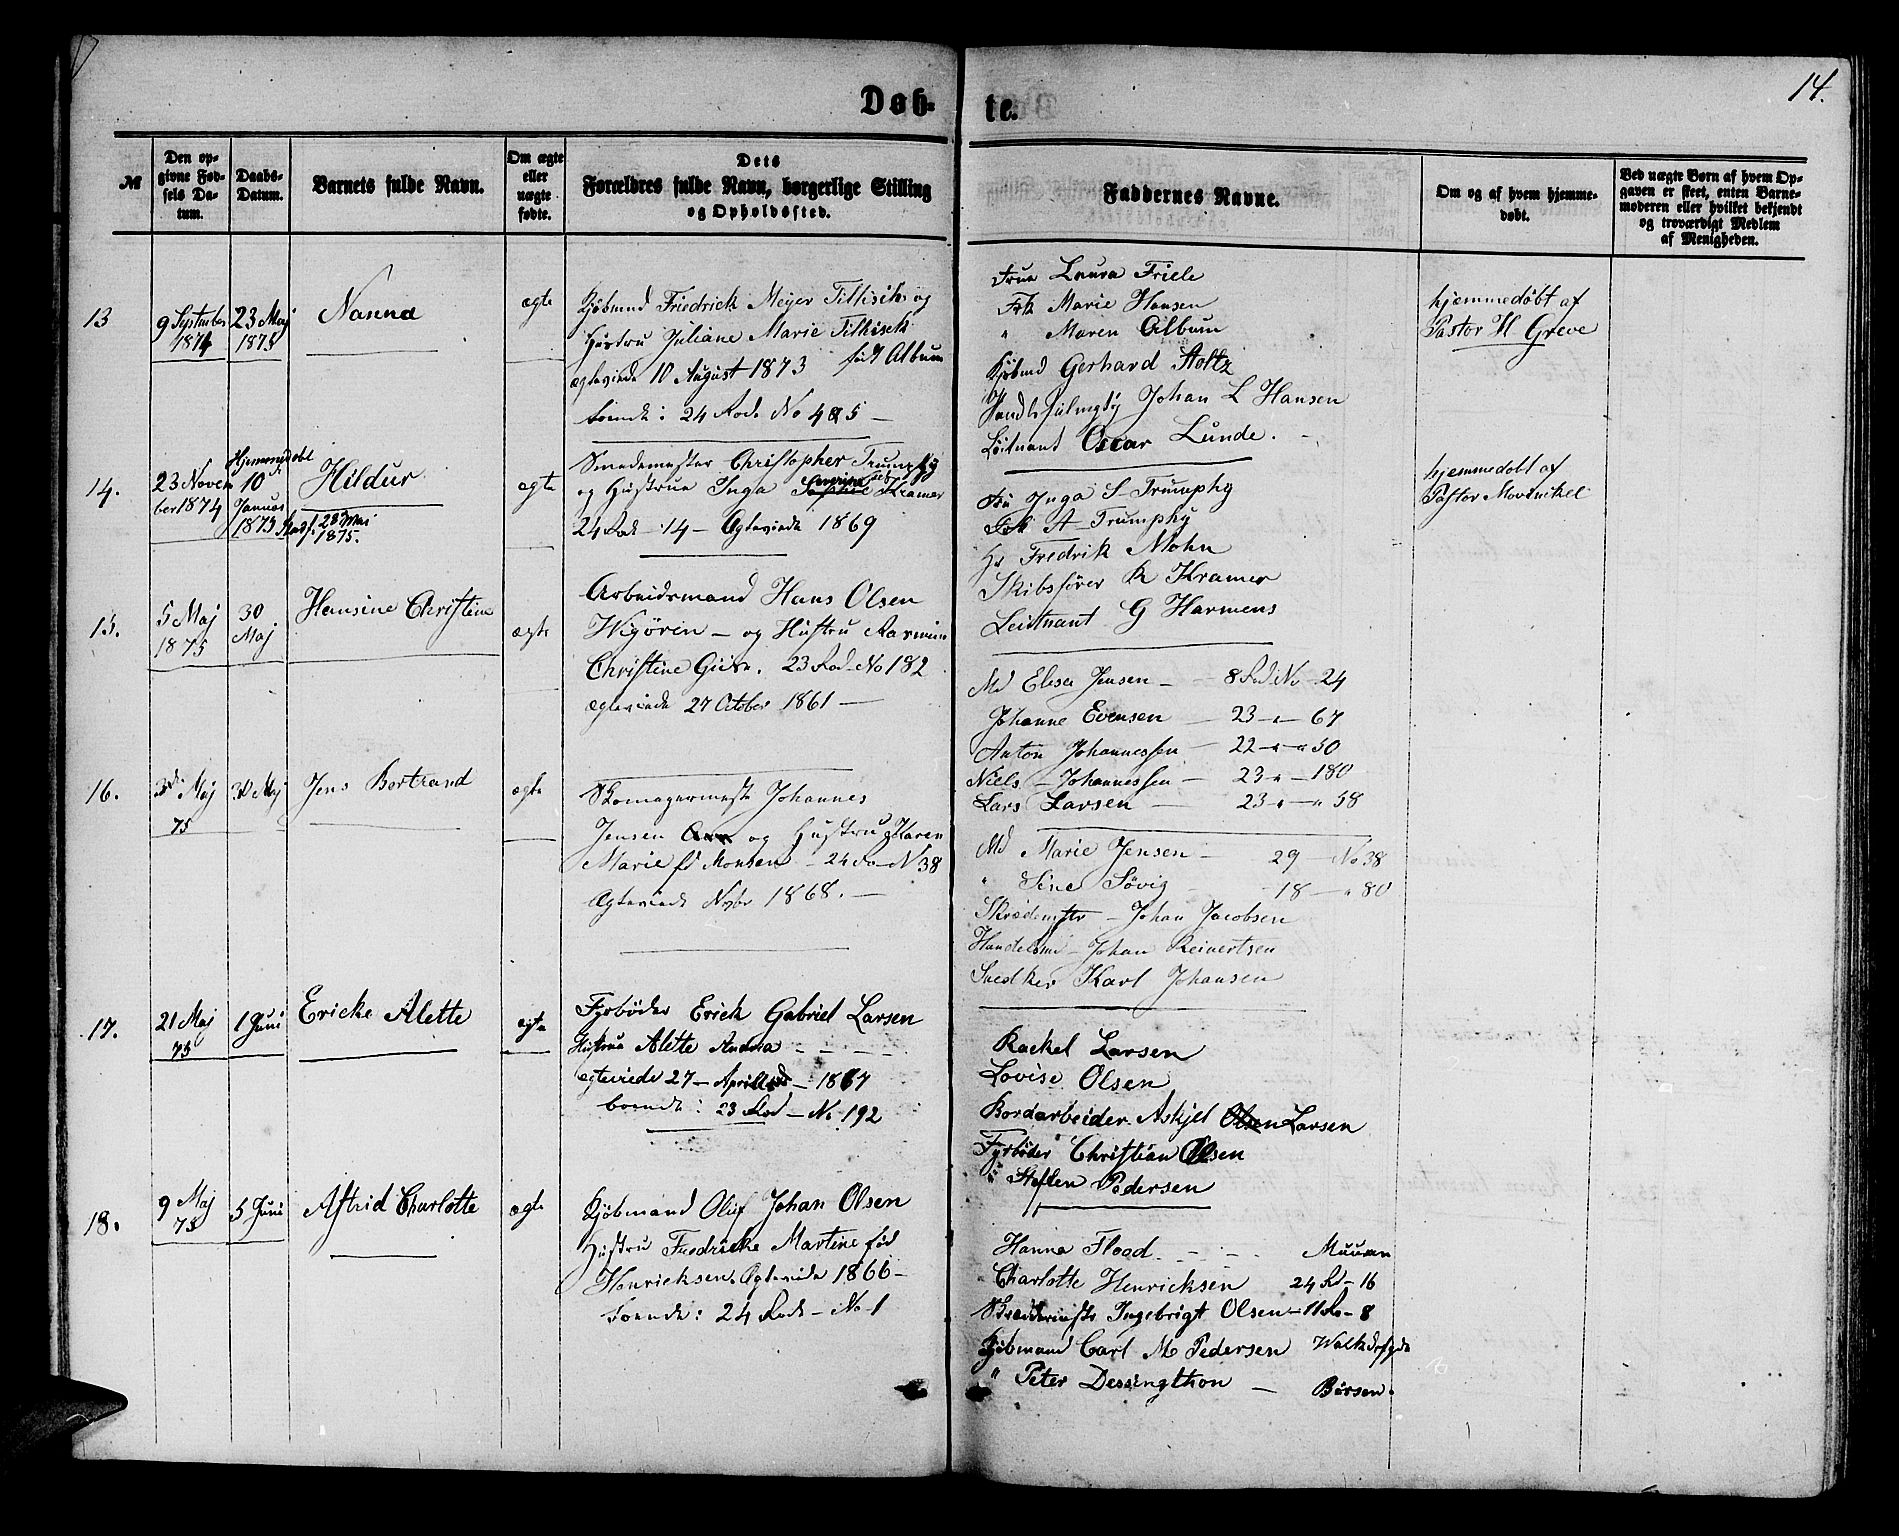 14.
Døb-
te.
№
Den op-
givne Fød-
sels Da-
tum.
Daabs-
Datum.
Barnets fulde Navn.
Om ægte
eller
uægte
fødte.
Dets
Forældres fulde Navn, borgerlige Stilling
og Opholdssted.
Faddernes Navne.
Om og af hvem hjemme-
døbt.
Ved uægte Børn af hvem Op-
gaven er skeet, enten Barne-
moderen eller hvilket bekjendt
og troværdigt Medlem
af Menigheden.
13
9 September
1874
23 Maj
1875
Nanna
ægte
Kjøbmnd Friedrick Meyer Tillisch og
Hustru Juliane Marie Tillisch
født Album
ægteviede 10 August 1873
boende: 24 Rode No 485 —
Frue Laura Friele
Frk Marie Hansen
" Maren Album
Kjøbmd Gerhard Stoltz
Johan L Hansen
Løitnant Oscar Lunde.
hjemmedøbt af
Pastor H Greve
14.
23 Novem
ber 1874
Hjemmedøbt
10
Januar
1875
23 Mai
1875.
Hildur
ægte
Smedemester Christopher Trumphy
og Hustrue Inga Kramer
24 Rod - 14 - Ægteviede 1869
Inga S Trumphy
A Trumphy
Hr Fredrik Mohn
Skibsfører R Kramer
Leitnant G Harmens
hjemmedøbt af
Pastor Movinckel
15.
5 Maj
1875
30
Maj
Hansine Christine
ægte
Arbeidsmand Hans Olsen
Wigøren — og Hustru
Christine 23 Rod - No 182
ægteviede 27 October 1861 —
Md Elesa Jensen — 8 Rod No - 24
Johanne Evensen — 23 — 67
Anton Johannessen — 22 — " 50
Niels — Johannessen — 23 — 180
Lars Larsen — 23 — " 58
16.
Maj
75
30 Maj
Jens Bertrand
ægte
Skomagermester Johannes
Jensen og Hustru Karen
Marie fø Monsen — 24 Ro - N 38
Ægteviede Novbr 1868. —
Md Marie Jensen — 29 — No 38
" Sine Søvig — 18 — " 80
Skrædemstr — Johan Jacobsen
Handelsmd — Johan Reinertsen
Snedker Karl Johansen
17.
21 Maj
75
1 Juni
Ericke Alette
ægte
Fyrbøder Erick Gabriel Larsen
Hustrue Alette Andrea
ægteviede 27 — April — 1867
boende: 23 Rod — No 192
Rackel Larsen
Lovise Olsen
Bordarbeider Askjel Olsen Larsen
Fyrbøder Christian Olsen
" Steffen Pedersen
18.
9 Maj
75
5 Juni
Astrid Charlotte
ægte
Kjøbmand Oluf Johan Olsen
Hustru Fredricke Martine fød
Henricksen. Ægteviede 1866 —
boende: 24 Rode — No 1
Hanna Flood — Muuren
Charlotte Henricksen 24 Rd — 16
Skræddermstr Ingebrigt Olsen — 11 Ro — 8
Kjøbmand Carl M Pedersen
" Peter Dessingthon — Børsen.